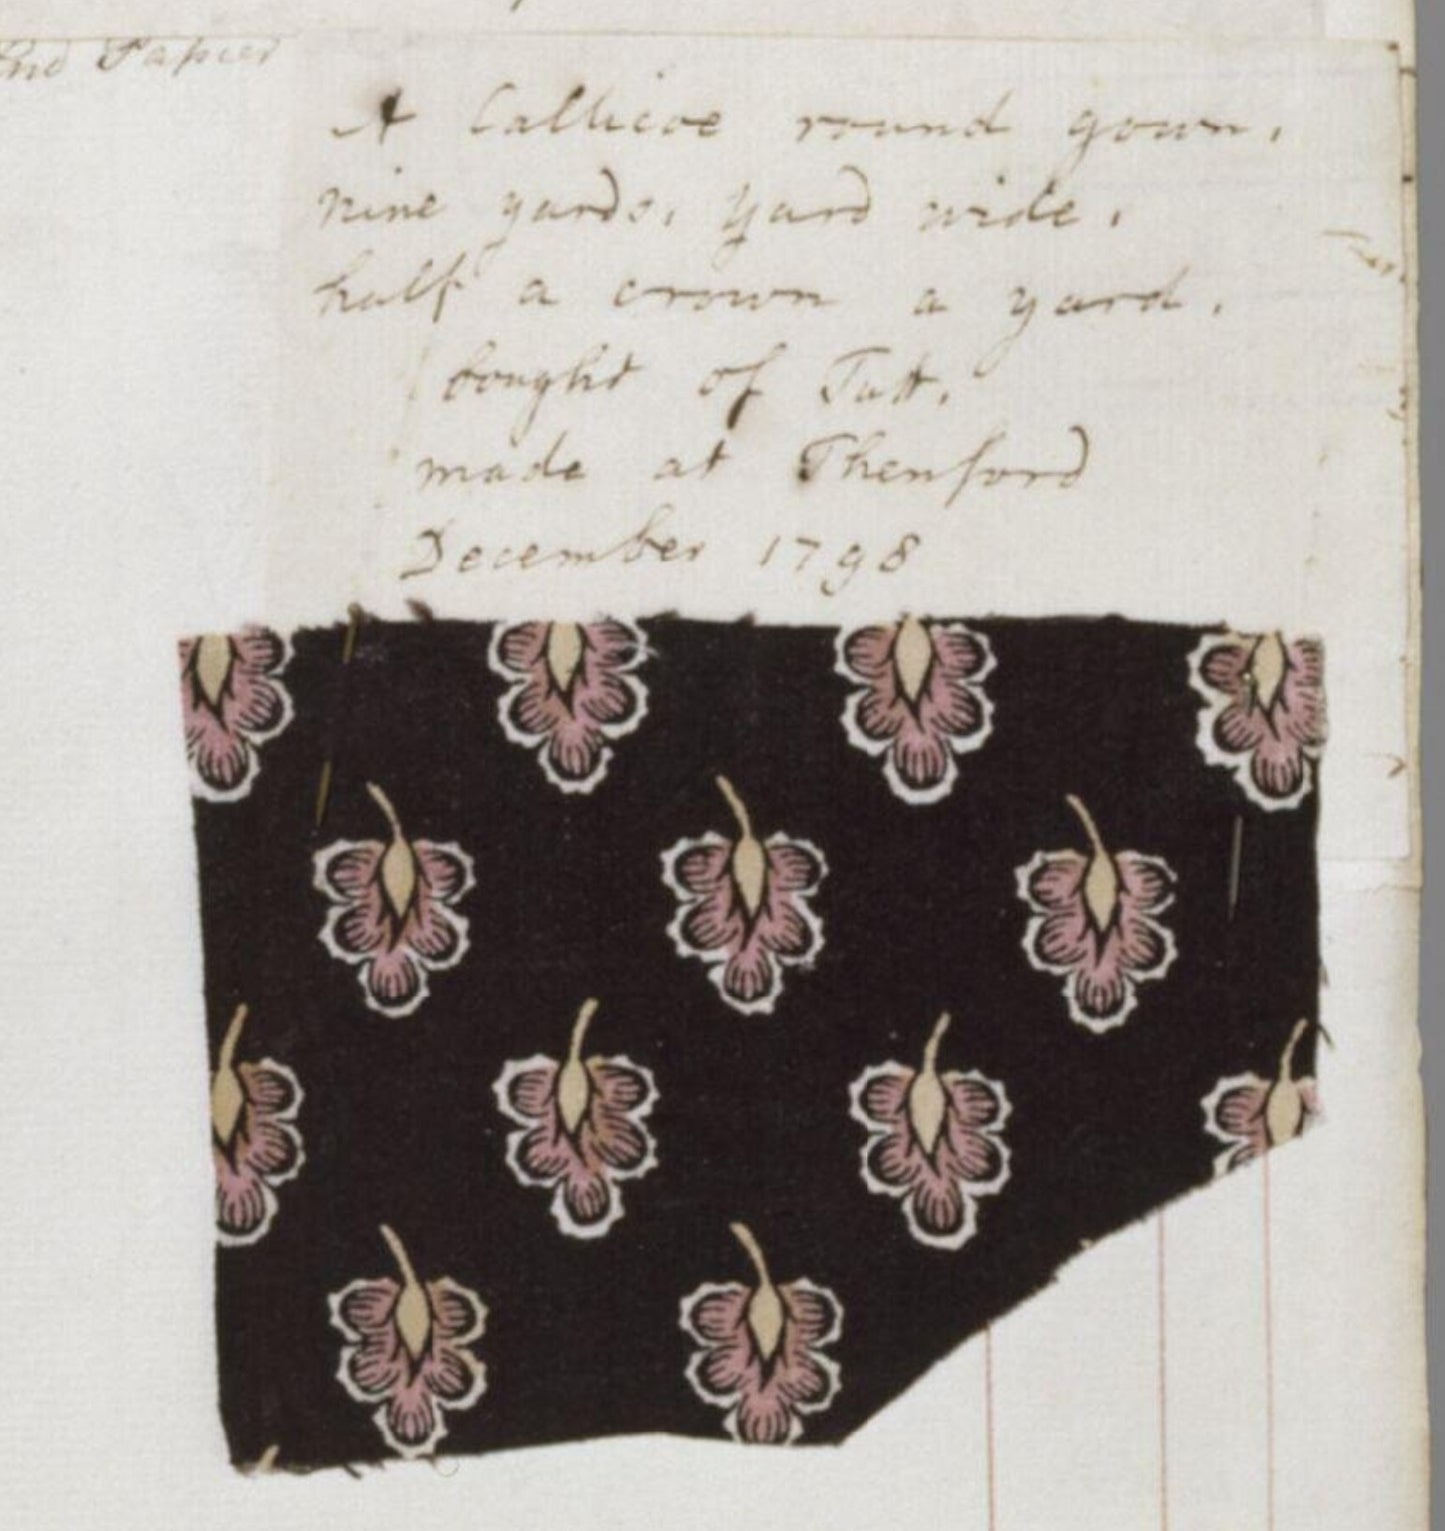 Papier
A Callicoe round gown,
nine yards, yard wide,
half a crown a yard,
bought of Tutt,
made at Thenford
December 1798